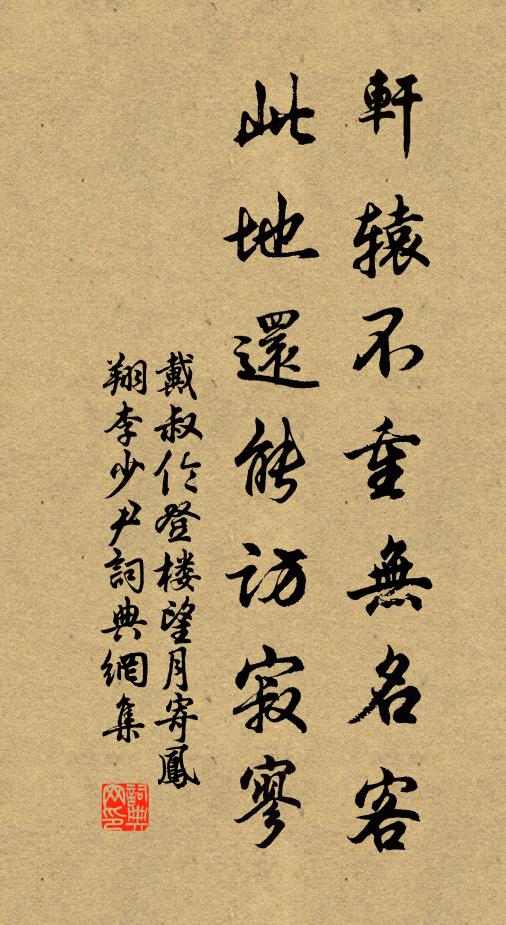 軒辕不重無名客
此地還能訪寂寥
戴叔伦登楼望月寄鳳
翔李少尹詞典網集
詞典網印